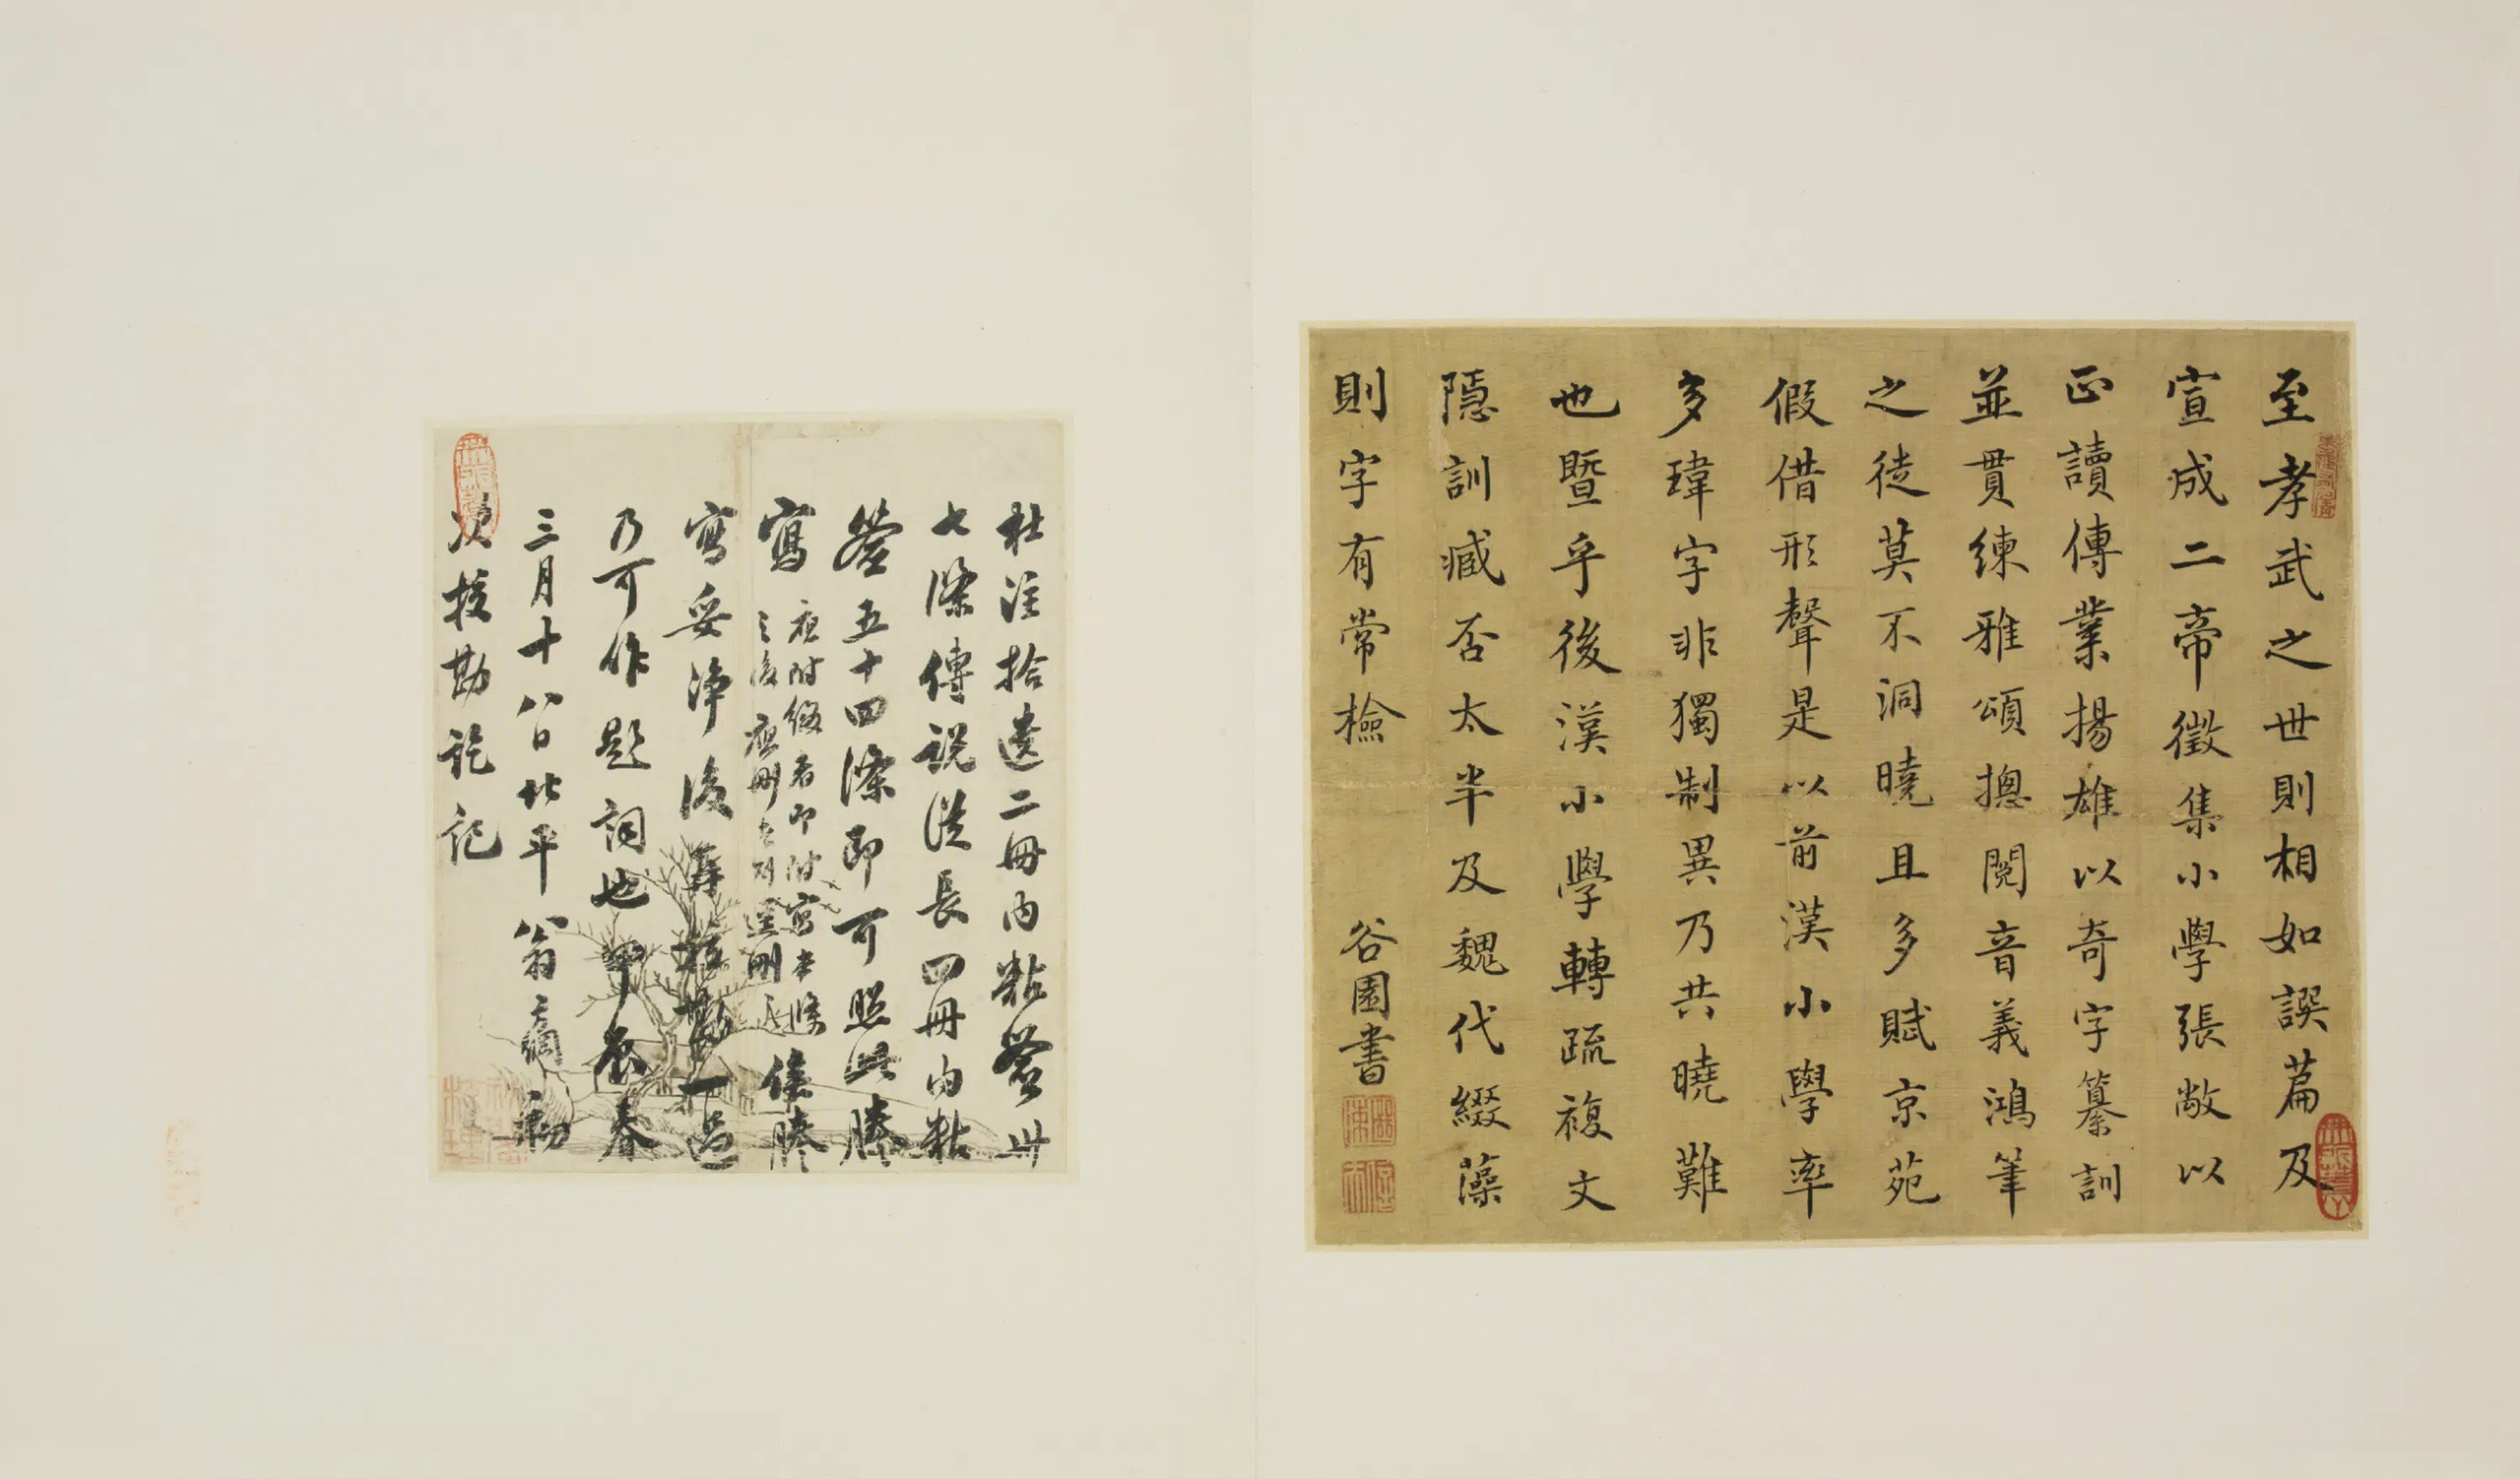 至孝武之世則相如譔篇及
宣成二帝徵集小學張敞以
正讀傳業揚雄以奇字纂訓
並貫練雅頌揔閱音義鴻筆
之徒莫不洞曉且多賦京苑
假借形聲是以前漢小學率
多瑋字非獨制異乃共曉難
也暨乎後漢小學轉疏複文
隱訓臧否太半及魏代綴藻
則字有常檢
谷園書
杜注拾遺二冊内粘簽卅
七條傳說從長四冊内粘
簽五十四條即可照此謄
寫
應附後者即附寫本條
之後應刪者則逕刪之
俟謄
寫妥淨後再校勘一過
乃可作題詞也甲辰春
三月十八日北平翁方綱初
次校勘訖記